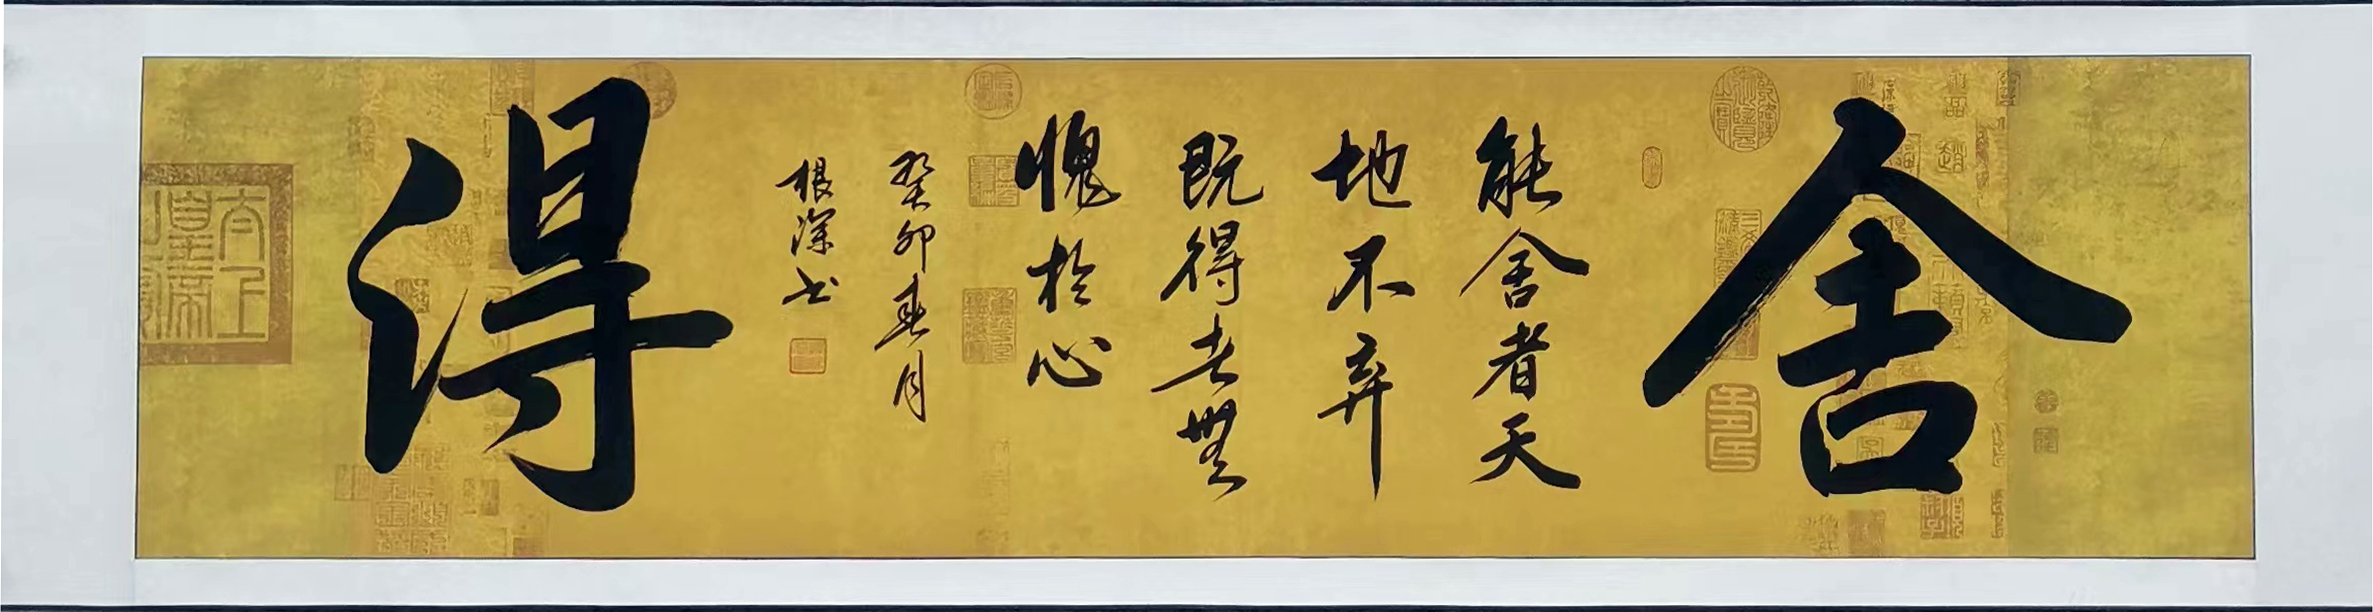 舍
能舍者天
地不弃
既得者無
愧於心
癸卯春月
根深书
得